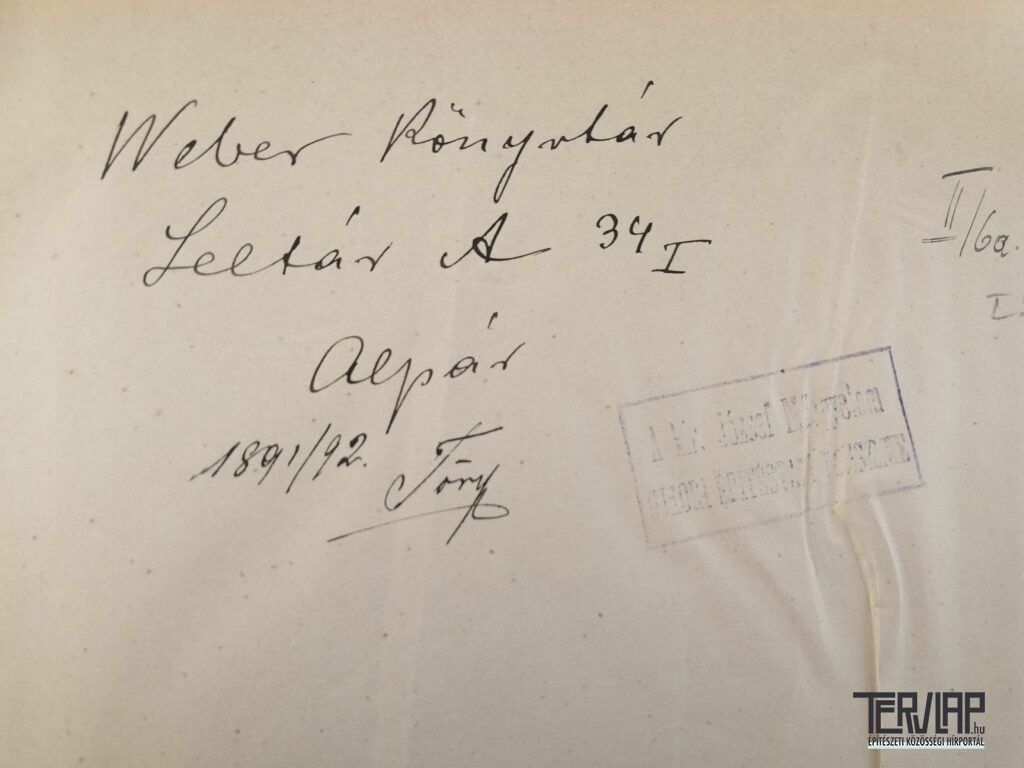 Weber Könyvtár
Leltár A 34 I
II/6a.
I.
Alpár
1891/92. Töry
A Kir. József Műegyetem
TERVLAP.hu
ÉPÍTÉSZETI KÖZÖSSÉGI HÍRPORTÁL